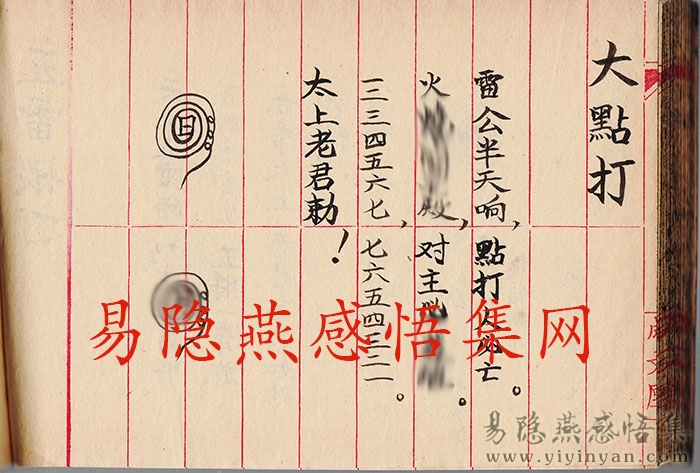 大點打
雷公半天响，點打人亡。
火殿，对主。
一二三四五六七，七六五四三二一。
太上老君勅！
日
易隐燕感悟集网
易隐燕感悟集
www.yiyinyan.com